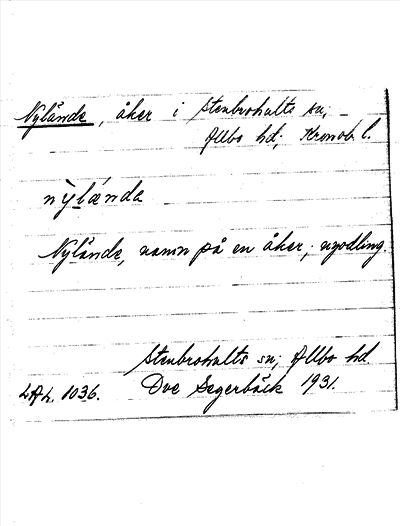 Nylände, åker i Stenbrohults sn,
Allbo hd; Kronob. l.
nỳlǽnda
Nylände, namn på en åker; nyodling.
Stenbrohults sn; Allbo hd.
LAL. 1036. Ove Segerbäck 1931.